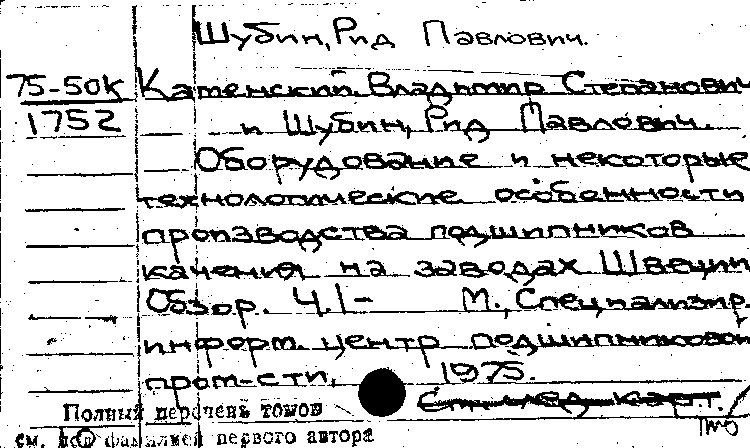 Шубин, Рид Павлович.
75-50К Каменский, Владимир Степанович
1752 и Шубин, Рид Павлович.
Оборудование и некоторые
технологические особенности
производства подшипников
качения на заводах Швеции
Обзор. Ч.1- М., Специализир.
информ. центр подшипниковой
пром-сти, 1975.
См. след. карт.
Полный перечень томов
см. под фамилией первого автора